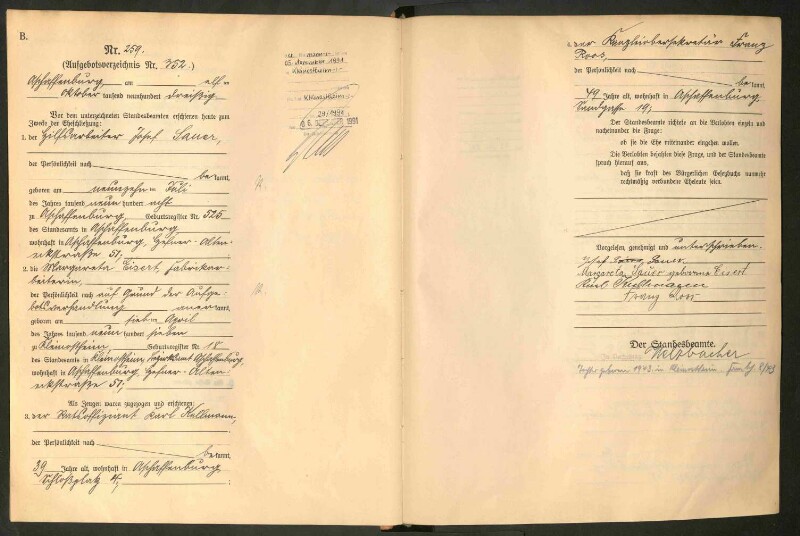 B.
Nr. 259.
(Aufgebotsverzeichnis Nr. 352.)
Aschaffenburg, am elf-
Oktober tausend neunhundert dreißig.
Vor dem unterzeichneten Standesbeamten erschienen heute zum
Zwecke der Eheschließung:
1. der Hilfsarbeiter Josef Sauer,
der Persönlichkeit nach
be kannt,
geboren am neunzehn- Juli
des Jahres tausend neun hundert acht
zu Aschaffenburg, Geburtsregister Nr. 525
des Standesamts in Aschaffenburg
wohnhaft in Aschaffenburg, Hefner-Alten-
eckstraße 51;
2. die Margareta Eisert, Fabrikar-
beiterin,
der Persönlichkeit nach auf Grund der Aufge-
botsverhandlung anerkannt,
geboren am sieben April
des Jahres tausend neun hundert sieben
zu Kleinostheim Geburtsregister Nr. 18
des Standesamts in Kleinostheim Bezirksamt Aschaffenburg,
wohnhaft in Aschaffenburg, Hefner-Alten-
eckstraße 51;
Als Zeugen waren zugezogen und erschienen:
3. der
Karl Kullmann,
der Persönlichkeit nach
be kannt,
39 Jahre alt, wohnhaft in Aschaffenburg
Schloßplatz 4;
4. der Kanzleiobersekretär Franz
Roos,
der Persönlichkeit nach
be kannt,
49 Jahre alt, wohnhaft in Aschaffenburg,
Sandgasse 19;
Der Standesbeamte richtete an die Verlobten einzeln und
nacheinander die Frage:
ob sie die Ehe miteinander eingehen wollen.
Die Verlobten bejahten diese Frage, und der Standesbeamte
sprach hierauf aus,
daß sie kraft des Bürgerlichen Gesetzbuchs nunmehr
rechtmäßig verbundene Eheleute seien.
Vorgelesen, genehmigt und unterschrieben.
Josef Sauer
Margareta Sauer geborene Eisert
Karl Kullmann
Franz Roos
Der Standesbeamte.
Welzbacher
geboren 1943 in